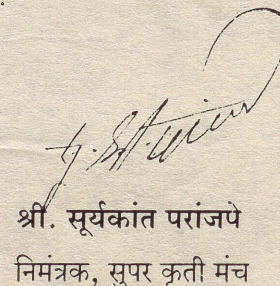 श्री. सूर्यकांत परांजपे
निमंत्रक, सुपर कृती मंच